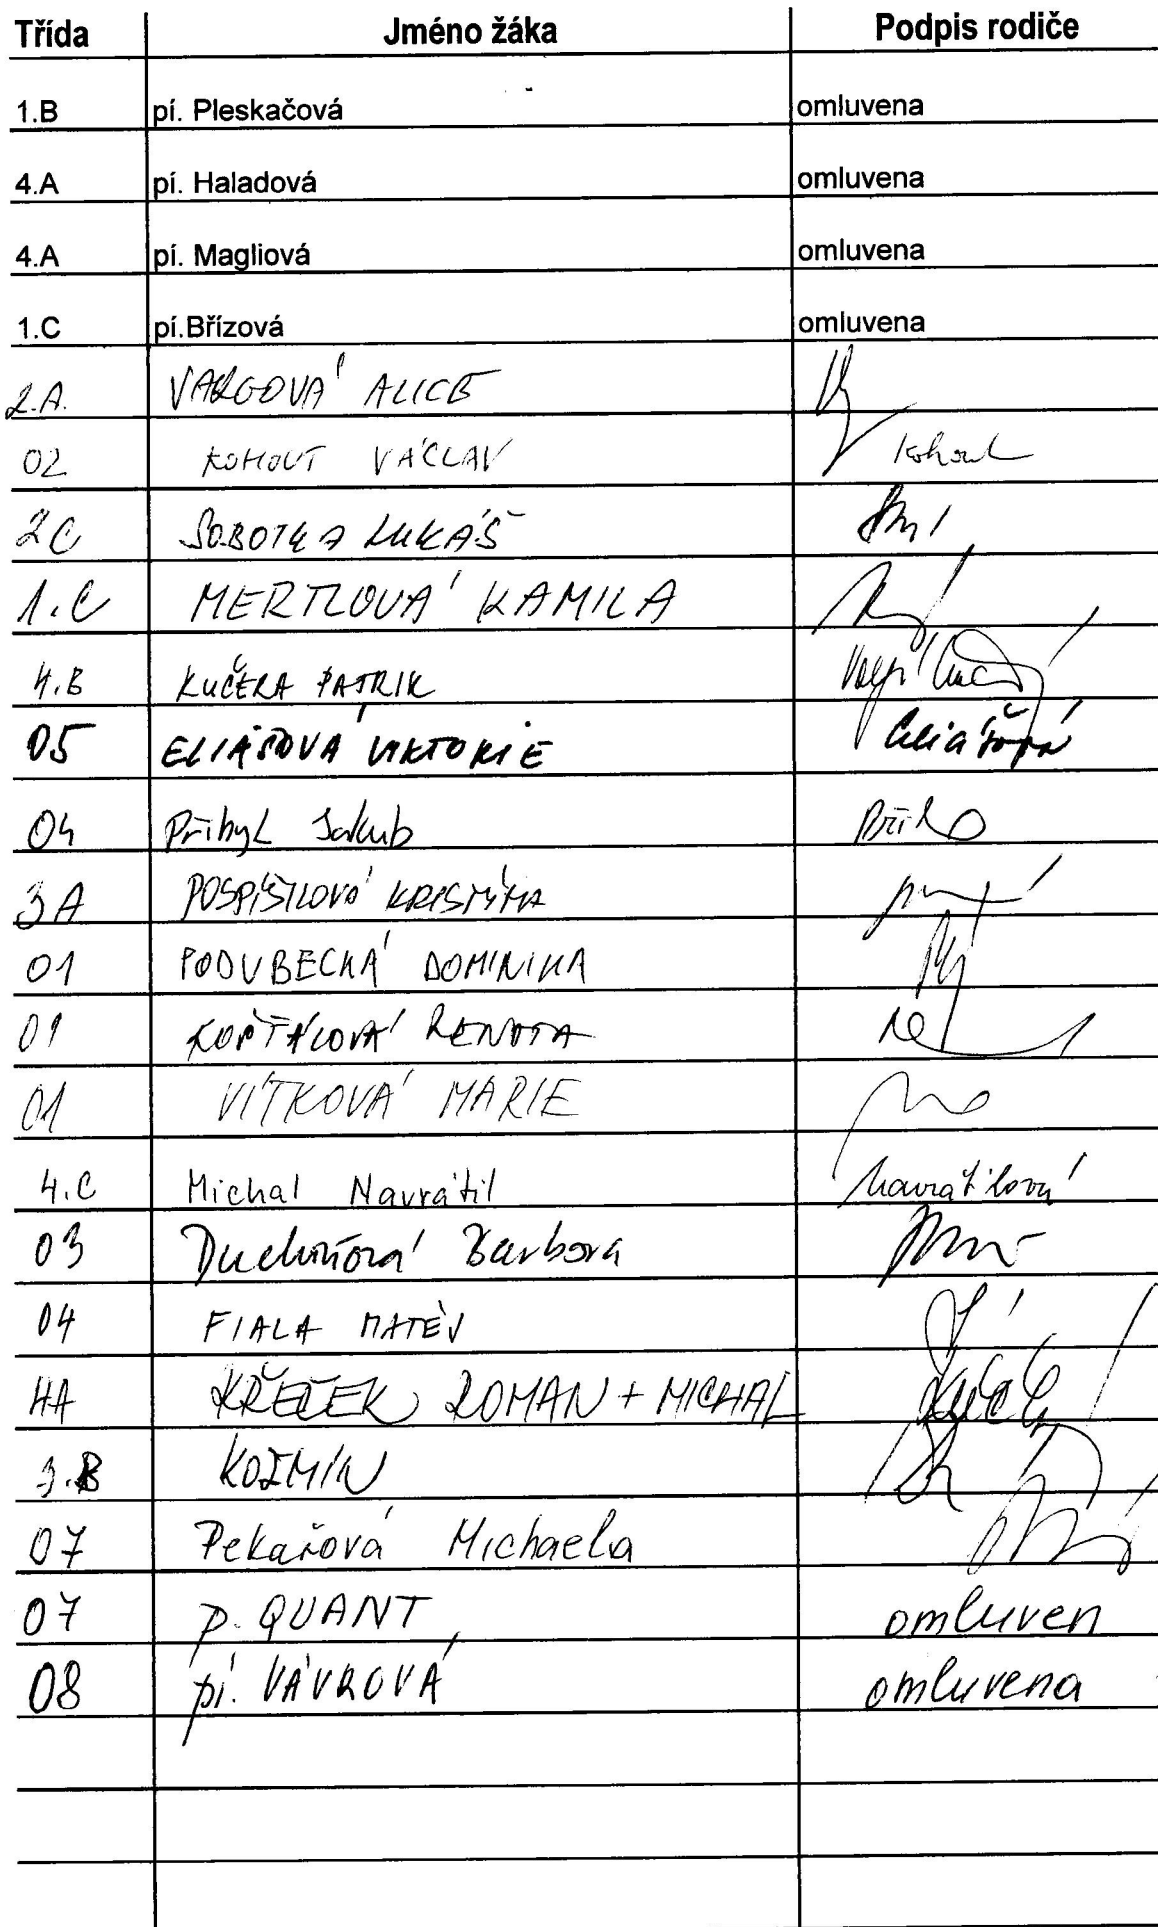 Třída Jméno žáka Podpis rodiče
1.B pí. Pleskačová omluvena
4.A pí. Haladová omluvena
4.A pí. Magliová omluvena
1.C pí.Břízová omluvena
2.A. VARGOVÁ ALICE
02 KOHOUT VÁCLAV Kohout
2C SOBOTKA LUKÁŠ
1.C MERTLOVÁ KAMILA
4.B KUČERA PATRIK
05 ELIÁŠOVÁ VIKTORIE Eliášová
04 Přibyl Jakub
3A POSPÍŠILOVÁ KRISTÝNA
01 PODUBECKÁ DOMINIKA
01 KOPŤÁLOVÁ RENATA
01 VÍTKOVÁ MARIE
4.C Michal Navrátil Navrátilová
03 Duchoňová Barbora
04 FIALA MATĚJ
4A KŘEČEK ROMAN + MICHAL
3.B KOZMÍN
07 Pekařová Michaela
07 p. QUANT omluven
08 pí. VÁVROVÁ omluvena